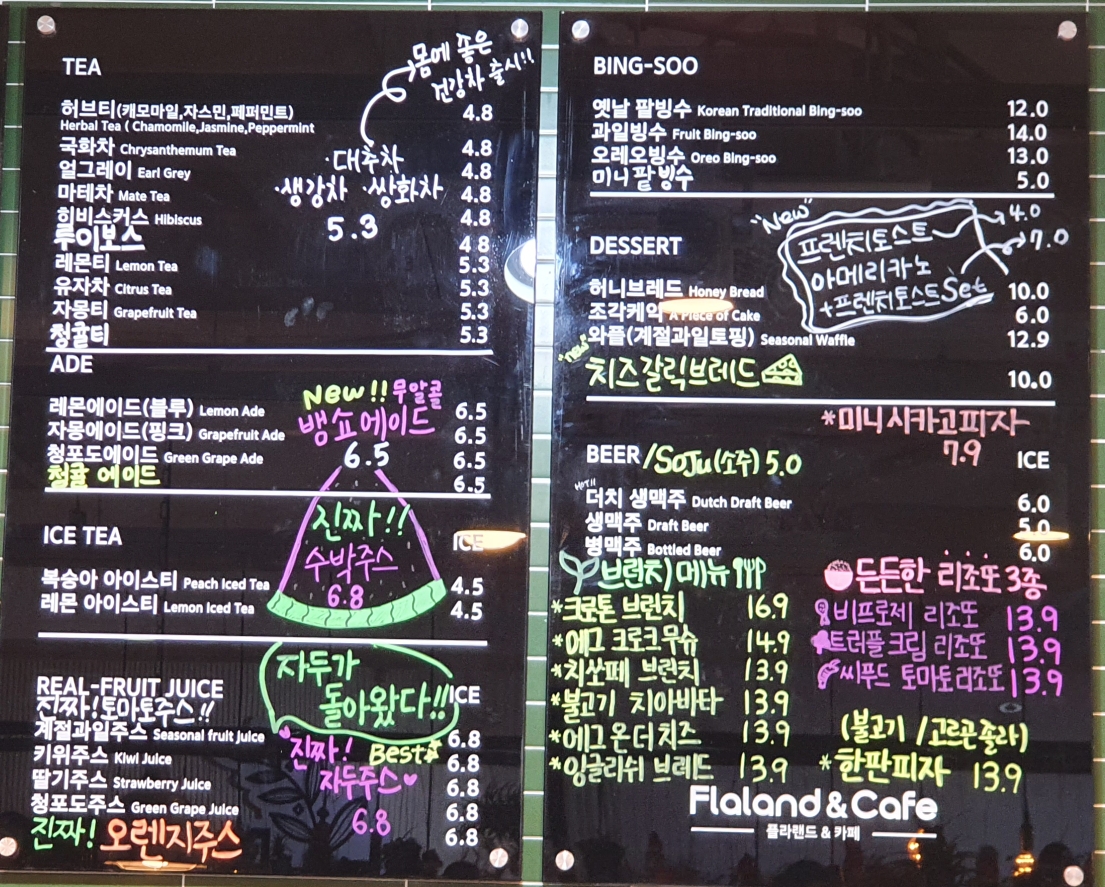 TEA
몸에 좋은
건강차 출시!!
허브티(캐모마일,자스민,페퍼민트) 4.8
Herbal Tea ( Chamomile,Jasmine,Peppermint
국화차 Chrysanthemum Tea 4.8
얼그레이 Earl Grey 4.8
마테차 Mate Tea 4.8
히비스커스 Hibiscus 4.8
루이보스 4 8
레몬티 Lemon Tea 5.3
유자차 Citrus Tea 5.3
자몽티 Grapefruit Tea 5.3
청귤티 5.3
·대추차
·생강차 ·쌍화차
5.3
ADE
레몬에이드(블루) Lemon Ade 6.5
자몽에이드(핑크) Grapefruit Ade 6.5
청포도에이드 Green Grape Ade 6.5
청귤 에이드 6.5
New!! 무알콜
뱅쇼에이드
6.5
ICE TEA ICE
복숭아 아이스티 Peach Iced Tea 4.5
레몬 아이스티 Lemon Iced Tea 4.5
진짜!!
수박주스
6.8
REAL-FRUIT JUICE ICE
진짜! 토마토주스!! 6.8
계절과일주스 Seasonal fruit Juice 6.8
키위주스 Kiwi Juice 6.8
딸기주스 Strawberry Juice 6.8
청포도주스 Green Grape Juice 6.8
진짜! 오렌지주스
자두가
돌아왔다!!
진짜! Best
자두주스
6.8
BING-SOO
옛날 팥빙수 Korean Traditional Bing-soo 12.0
과일빙수 Fruit Bing-soo 14.0
오레오빙수 Oreo Bing-soo 13.0
미니팥빙수 5.0
DESSERT
"New"
프렌치토스트 4.0
아메리카노
+프렌치토스트 Set 7.0
허니브레드 Honey Bread 10.0
조각케익 A Piece of Cake 6.0
와플(계절과일토핑) Seasonal Waffle 12.9
"new"
치즈갈릭브레드 10.0
*미니시카고피자
7.9
BEER /Soju(소주) 5.0 ICE
더치 생맥주 Dutch Draft Beer 6.0
생맥주 Draft Beer 5.0
병맥주 Bottled Beer 6.0
브런치 메뉴
*크루톤 브런치 16.9
*에그 크로크무슈 14.9
*치쏘페 브런치 13.9
*불고기 치아바타 13.9
*에그 온 더 치즈 13.9
*잉글리쉬 브레드 13.9
든든한 리조또 3종
비프로제 리조또 13.9
트러플크림 리조또 13.9
씨푸드 토마토리조또 13.9
(불고기 /고르곤졸라)
*한판피자 13.9
Flaland & Cafe
플라랜드 & 카페